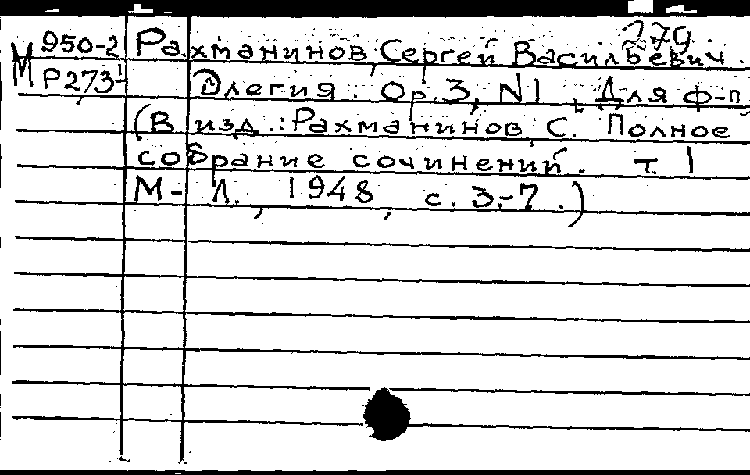 279.
М 950-2 Рахманинов, Сергей Васильевич.
Р273-1 Элегия. Ор. 3, N1, Для ф-п.
(В изд.: Рахманинов, С. Полное
собрание сочинений. т. 1
М-Л., 1948, с. 3-7.)